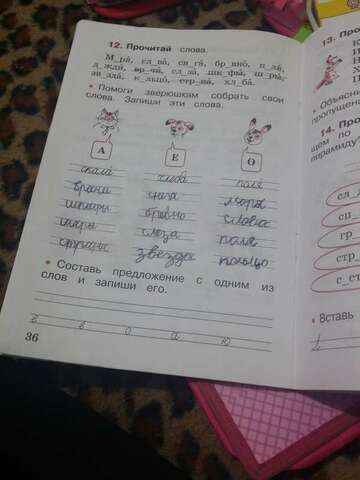 12. Прочитай слова.
М_ря́, сл_ва́, сн_га́, бр_вно́, п_ля́,
д_жди́, вр_чи́, сл_за́, шк_фы́, ш_ры́,
зв_зда́, к_льцо́, стр_на́, хл_ба́.
• Помоги зверюшкам собрать свои
слова. Запиши эти слова.
А Е О
скала слова поля
врачи снега моря
шкафы бревно слова
шары слеза поля
страны звезда кольцо
• Составь предложение с одним из
слов и запиши его.
в о а ю
36
13. Про
• Объясни
пропущен
14. Про
щем по
пирамиду
сл_
сп_
гр_
стр_
с_ст
• Вставь